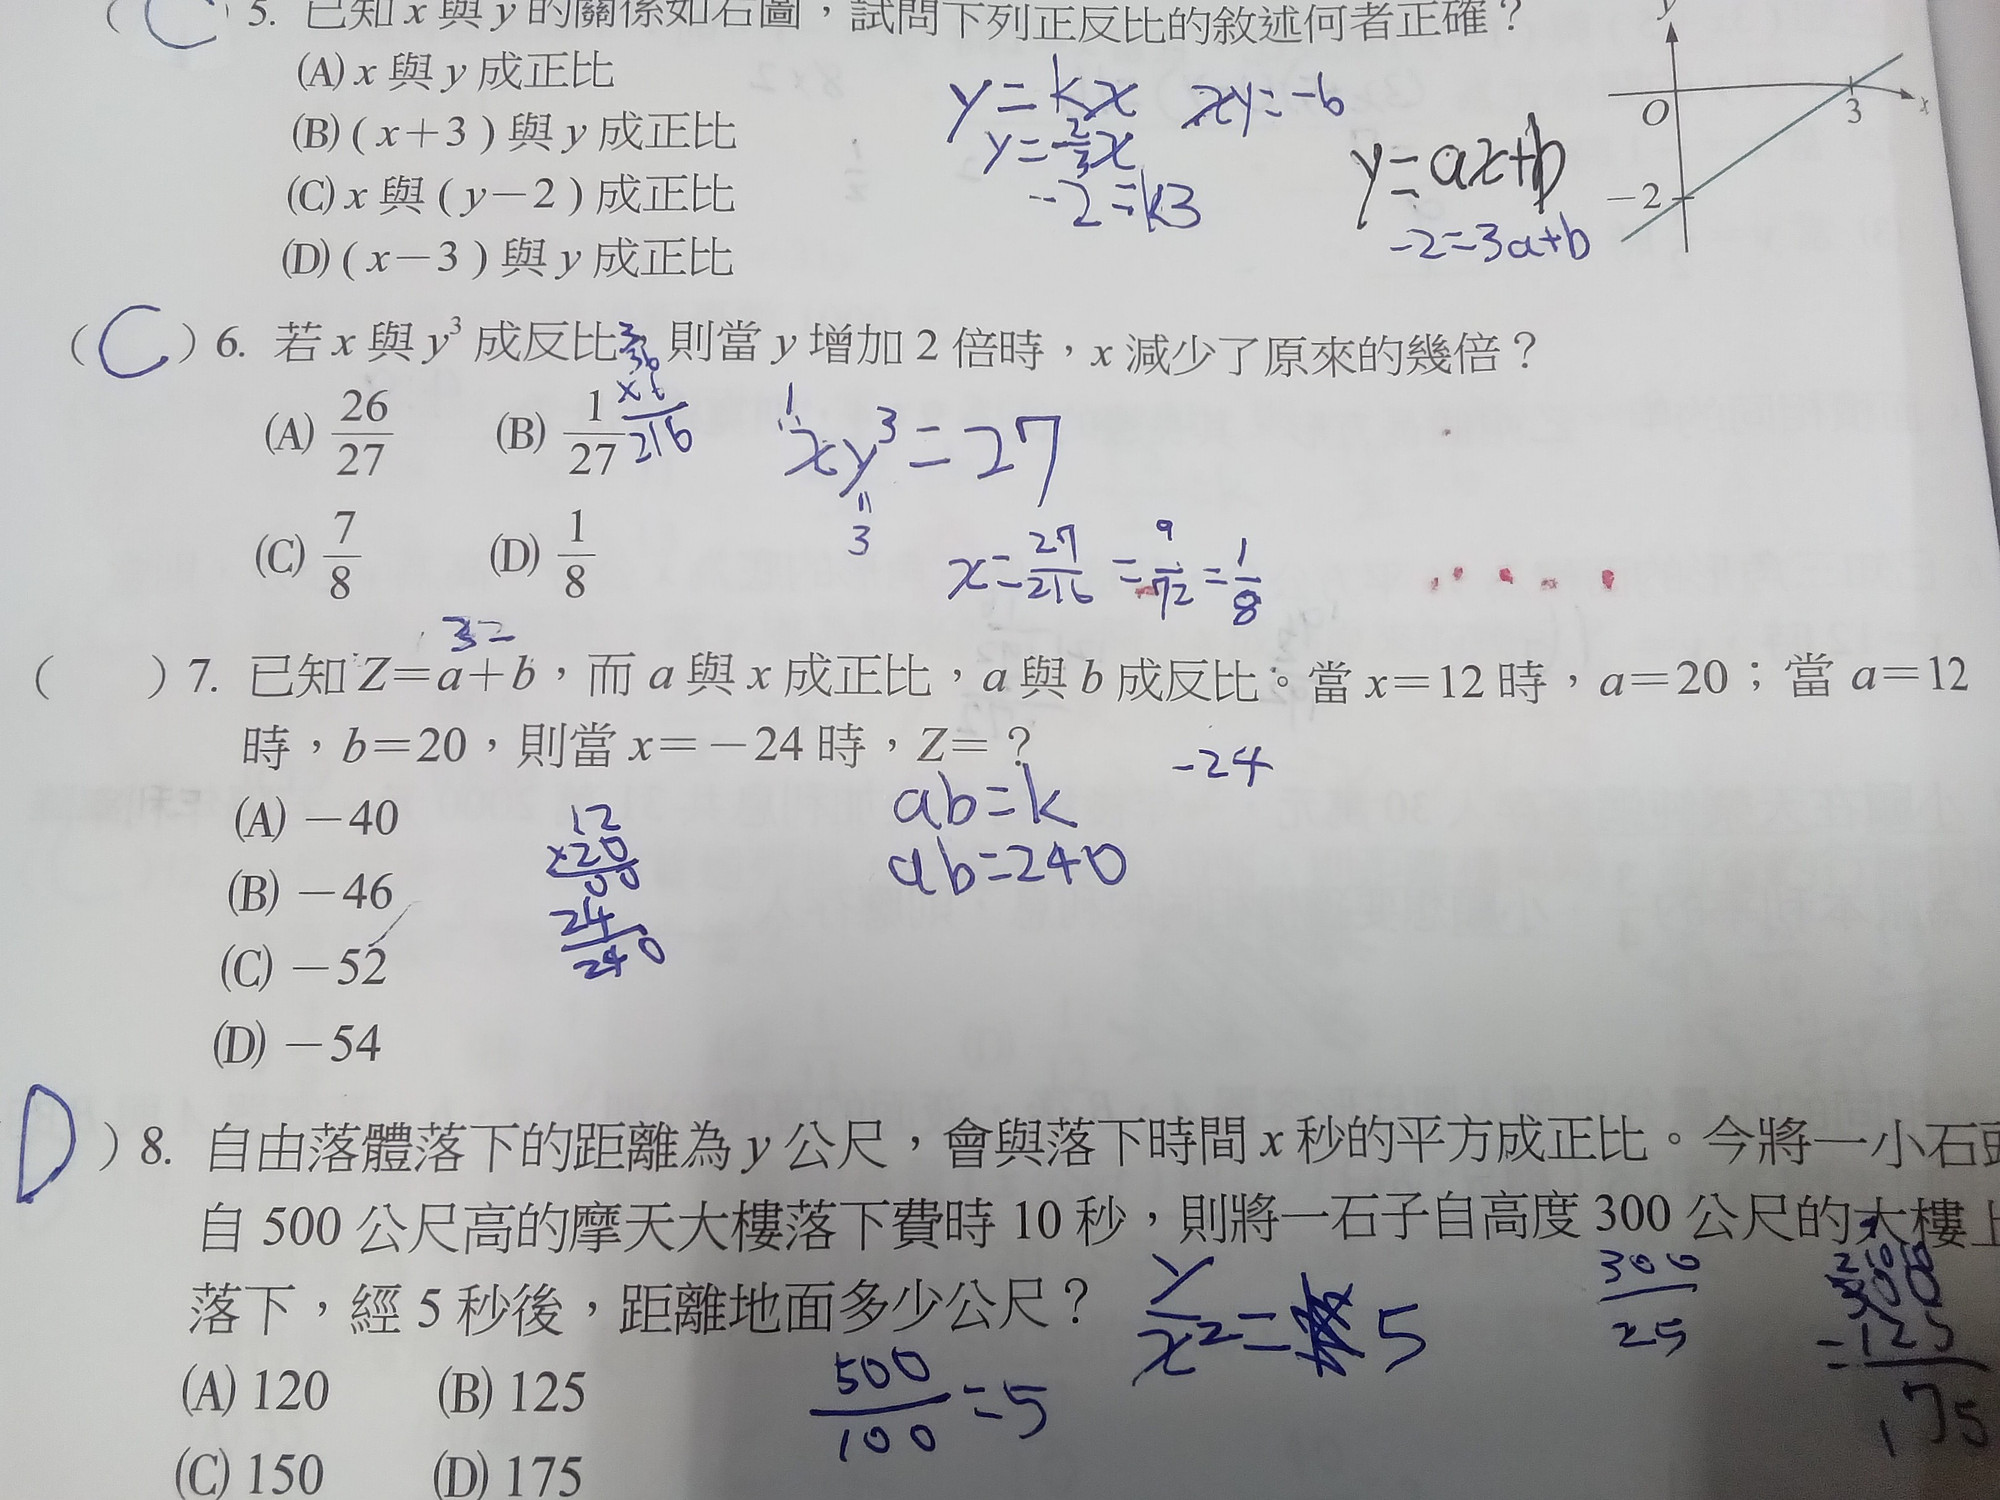 ( C ) 5. 已知 x 與 y 的關係如右圖，試問下列正反比的敘述何者正確？
(A) x 與 y 成正比
(B) ( x＋3 ) 與 y 成正比
(C) x 與 ( y－2 ) 成正比
(D) ( x－3 ) 與 y 成正比
y=kx xy=-6
y=-2/3x
-2=k3
y=ax+b
-2=3a+b
y
O
3
x
－2
( C ) 6. 若 x 與 y³ 成反比，則當 y 增加 2 倍時，x 減少了原來的幾倍？
(A) 26/27 (B) 1/27
(C) 7/8 (D) 1/8
36
×6
216
1
xy³=27
3
x=27/216=9/72=1/8
( ) 7. 已知 Z＝a＋b，而 a 與 x 成正比，a 與 b 成反比。當 x＝12 時，a＝20；當 a＝12
時，b＝20，則當 x＝－24 時，Z＝？
32
-24
(A) －40
(B) －46
(C) －52
(D) －54
12
×20
00
24
240
ab=k
ab=240
D ) 8. 自由落體落下的距離為 y 公尺，會與落下時間 x 秒的平方成正比。今將一小石頭
自 500 公尺高的摩天大樓落下費時 10 秒，則將一石子自高度 300 公尺的大樓上
落下，經 5 秒後，距離地面多少公尺？
(A) 120 (B) 125
(C) 150 (D) 175
500/100=5
y/x²=5
300/25
300
-125
175